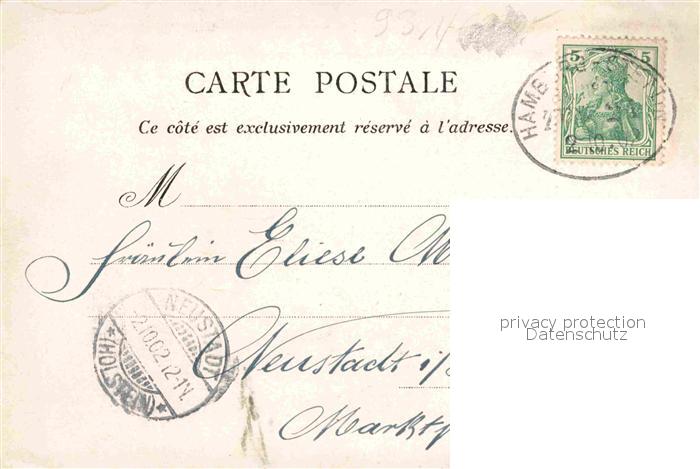 93
CARTE POSTALE
Ce côté est exclusivement réservé à l'adresse.
5 5
DEUTSCHES REICH
HAMB
M
Fräulein Eliese M
Neustadt i/
Marktp
NEUSTADT
2.10.02.12-1N.
*(HOLSTEIN)*
privacy protection
Datenschutz